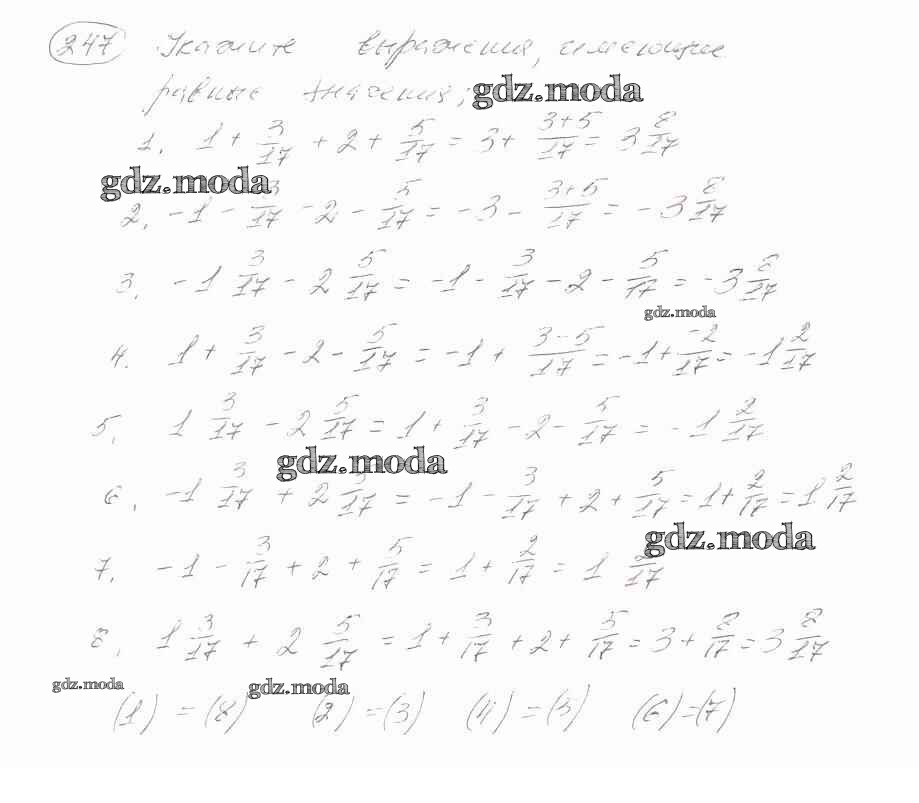 247 Укажите выражения, имеющие
равные значения;
gdz.moda
1. 1 + 3/17 + 2 + 5/17 = 3 + (3+5)/17 = 3 8/17
gdz.moda
2. -1 - 3/17 - 2 - 5/17 = -3 - (3+5)/17 = -3 8/17
3. -1 3/17 - 2 5/17 = -1 - 3/17 - 2 - 5/17 = -3 8/17
gdz.moda
4. 1 + 3/17 - 2 - 5/17 = -1 + (3-5)/17 = -1 + -2/17 = -1 2/17
5. 1 3/17 - 2 5/17 = 1 + 3/17 - 2 - 5/17 = -1 2/17
gdz.moda
6. -1 3/17 + 2 /17 = -1 - 3/17 + 2 + 5/17 = 1 + 2/17 = 1 2/17
gdz.moda
7. -1 - 3/17 + 2 + 5/17 = 1 + 2/17 = 1 /17
8. 1 3/17 + 2 5/17 = 1 + 3/17 + 2 + 5/17 = 3 + 8/17 = 3 8/17
gdz.moda gdz.moda
(1) = (8) (2) = (3) (4) = (5) (6) = (7)